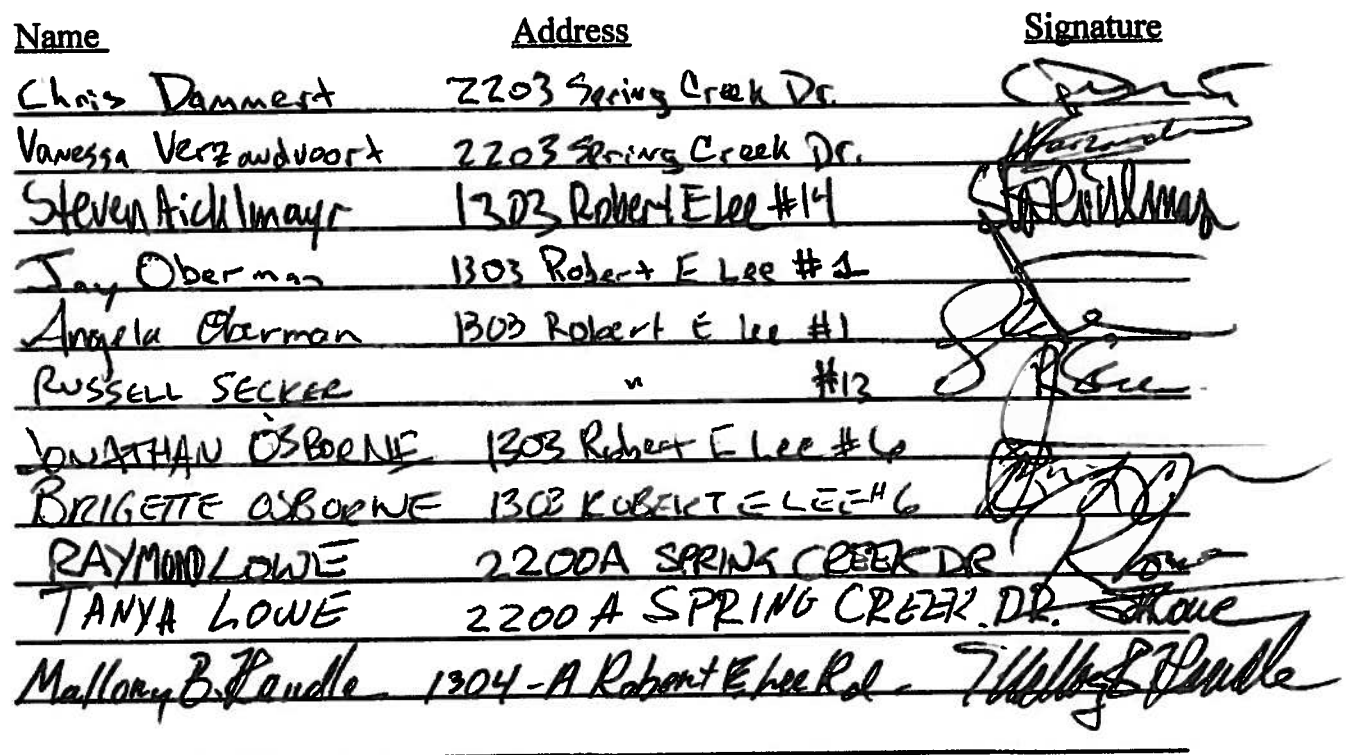 Name Address Signature
Chris Dammert 2203 Spring Creek Dr.
Vanessa Verzandvoort 2203 Spring Creek Dr.
Steven Aichlmayr 1303 Robert E Lee #14
Jay Oberman 1303 Robert E Lee #1
Angela Oberman 1303 Robert E lee #1
RUSSELL SECKER " #13
JONATHAN OSBORNE 1303 Robert E Lee #6
BRIGETTE OSBORNE 1303 ROBERT E LEE #6
RAYMOND LOWE 2200A SPRING CREEK DR
TANYA LOWE 2200 A SPRING CREEK. DR. TLowe
Mallory B. 1304-A Robert E Lee Rd.